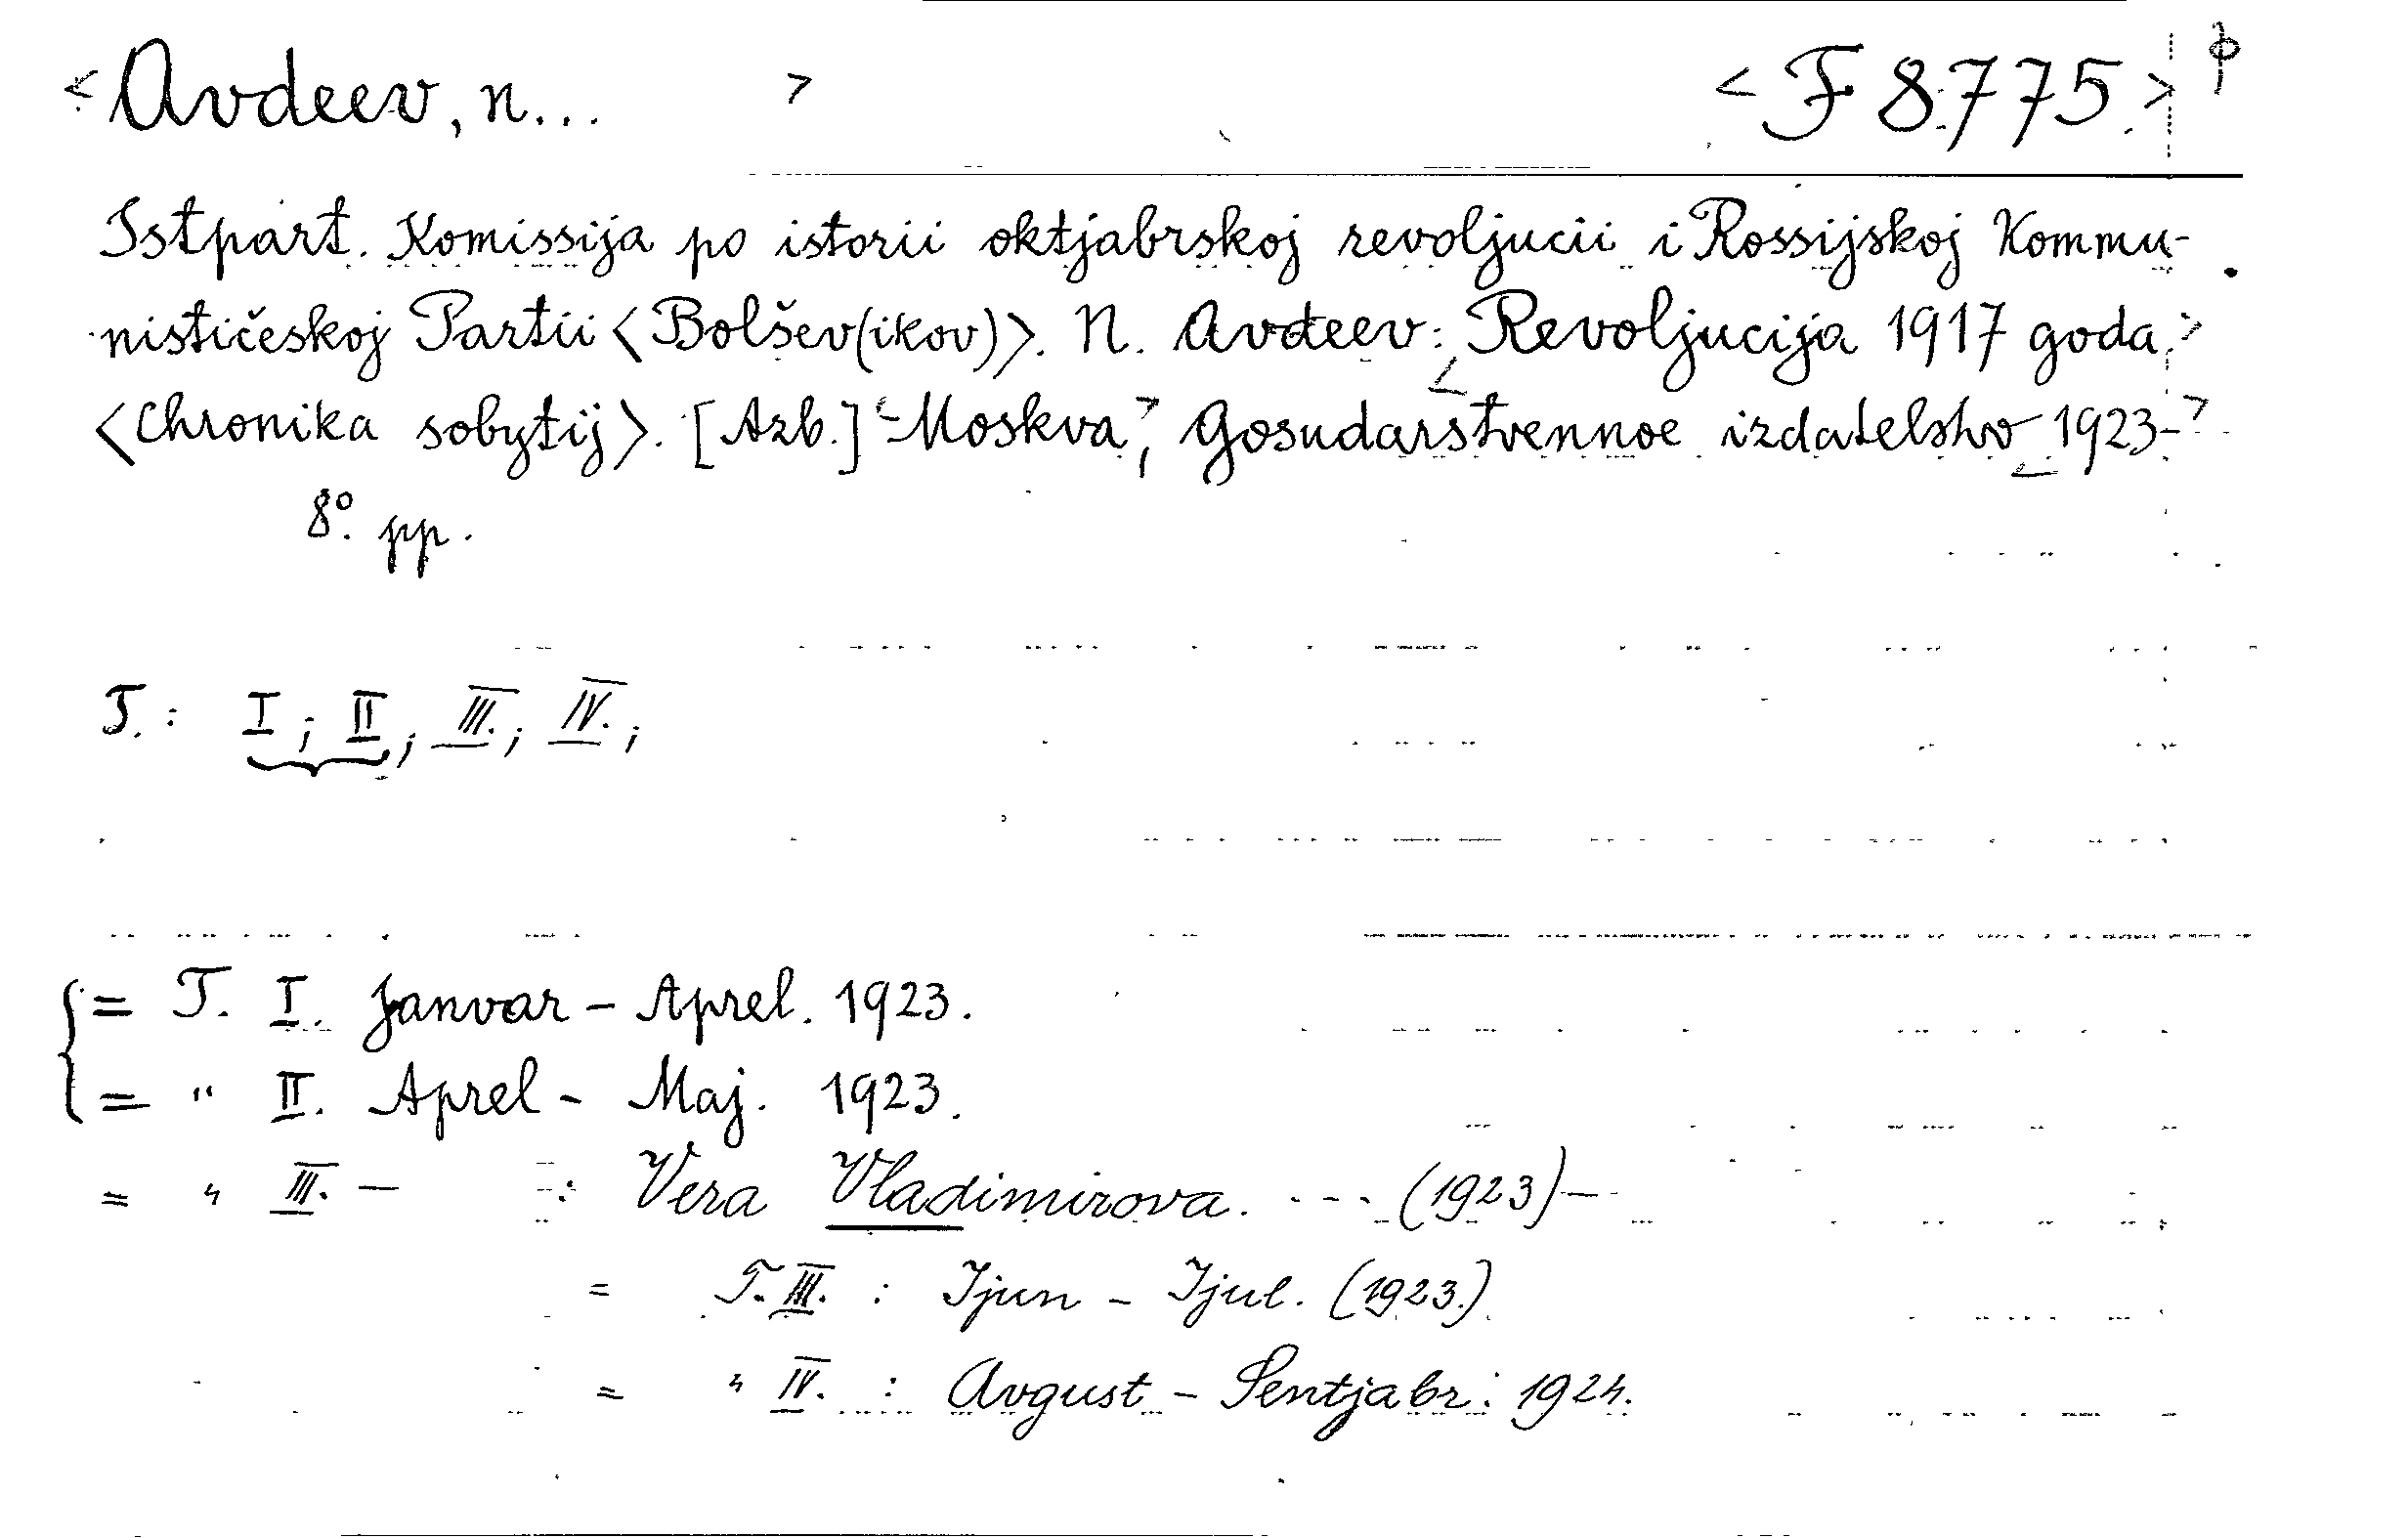 <Avdeev, N... > <F 8775>
Istpart. Komissija po istorii oktjabrskoj revoljucii i Rossijskoj Kommu-
nističeskoj Partii <Bolšev(ikov)>. N. Avdeev: Revoljucija 1917 goda
<Chronika sobytij>. [Azb.] - Moskva, Gosudarstvennoe izdatelstvo 1923-
8°. pp.
T.: I; II; III.; IV.;
= T. I. Janvar - Aprel. 1923.
= " II. Aprel - Maj. 1923.
= " III. - : Vera Vladimirova. --- (1923)-
= T. III. : Ijun - Ijul. (1923.)
= " IV. : Avgust - Sentjabr: 1924.